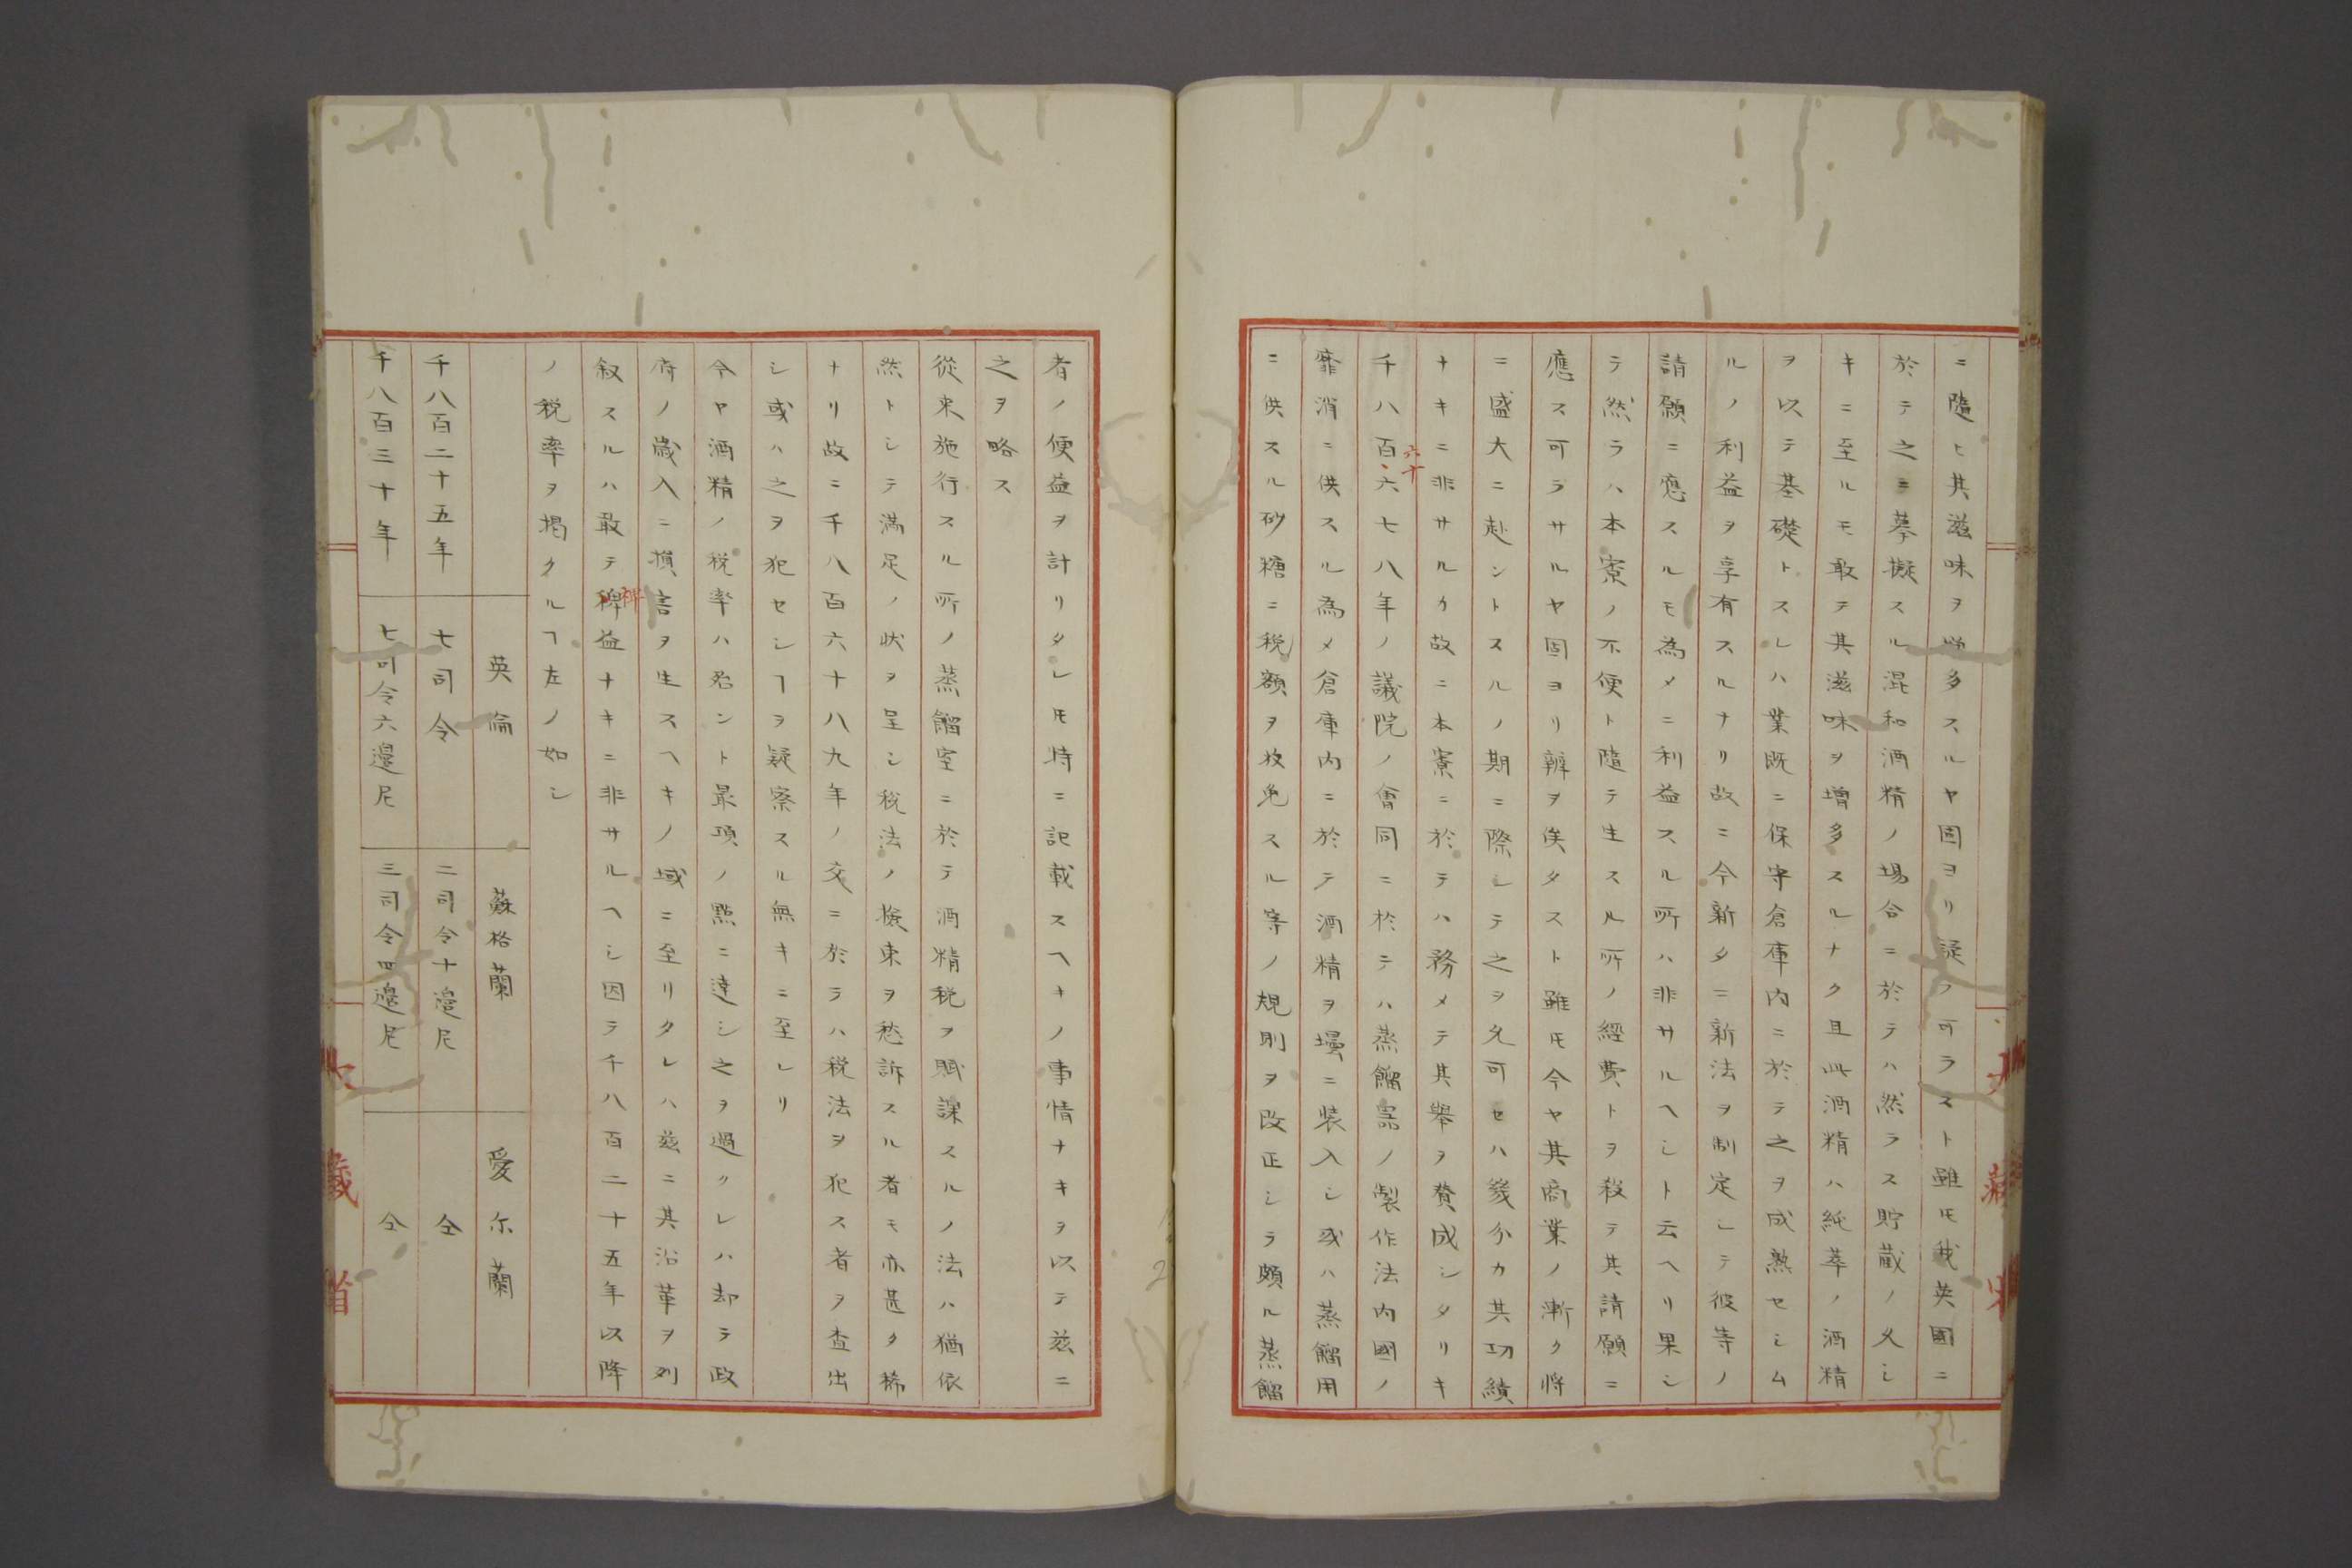 ニ隨ヒ其滋味ヲ増多スルヤ固ヨリ疑フ可ラスト雖𪜈我英國ニ
於テ之ニ摹擬スル混和酒精ノ場合ニ於テハ然ラス貯蔵ノ久シ
キニ至ルモ敢テ其滋味ヲ增多スルナク且此酒精ハ純萃ノ酒精
ヲ以テ基礎トスレハ業既ニ保守倉庫内ニ於テ之ヲ成熟セシム
ルノ利益ヲ享有スルナリ故ニ今新タニ新法ヲ制定シテ彼等ノ
請願ニ應スルモ為メニ利益スル所ハ非サルヘシト云ヘリ果シ
テ然ラハ本寮ノ不便ト隨テ生スル所ノ經費トヲ殺テ其請願ニ
應ス可ラサルヤ固ヨリ辯ヲ俟タスト雖𪜈今ヤ其商業ノ漸ク將
ニ盛大ニ赴ントスルノ期ニ際シテ之ヲ允可セハ幾分カ其功績
ナキニ非サルカ故ニ本寮ニ於テハ務メテ其舉ヲ賛成シタリキ
千八百六十六七八年ノ議院ノ會同ニ於テハ蒸餾器ノ製作法内國ノ
靡消ニ供スル為メ倉庫内ニ於テ酒精ヲ壜ニ装入シ或ハ蒸餾用
ニ供スル砂糖ニ税額ヲ放免スル等ノ規則ヲ改正シテ頗ル蒸餾
者ノ便益ヲ計リタレ𪜈特ニ記載スヘキノ事情ナキヲ以テ茲ニ
之ヲ略ス
從来施行スル所ノ蒸餾室ニ於テ酒精税ヲ賦課スルノ法ハ猶依
然トシテ満足ノ状ヲ呈シ税法ノ檢束ヲ愁訴スル者モ亦甚タ稀
ナリ故ニ千八百六十八九年ノ交ニ於テハ税法ヲ犯ス者ヲ査出
シ或ハ之ヲ犯セシヿヲ疑察スル無キニ至レリ
今ヤ酒精ノ税率ハ殆ント最頂ノ點ニ達シ之ヲ過クレハ却テ政
府ノ歳入ニ損害ヲ生スヘキノ域ニ至リタレハ茲ニ其沿革ヲ列
敍スルハ敢テ裨益ナキニ非サルヘシ因テ千八百二十五年以降
ノ税率ヲ掲クルヿ左ノ如シ
英倫 蘇格蘭 愛尓蘭
千八百二十五年 七司令 二司令十邉尼 仝
千八百三十年 七司令六邉尼 三司令四邉尼 仝